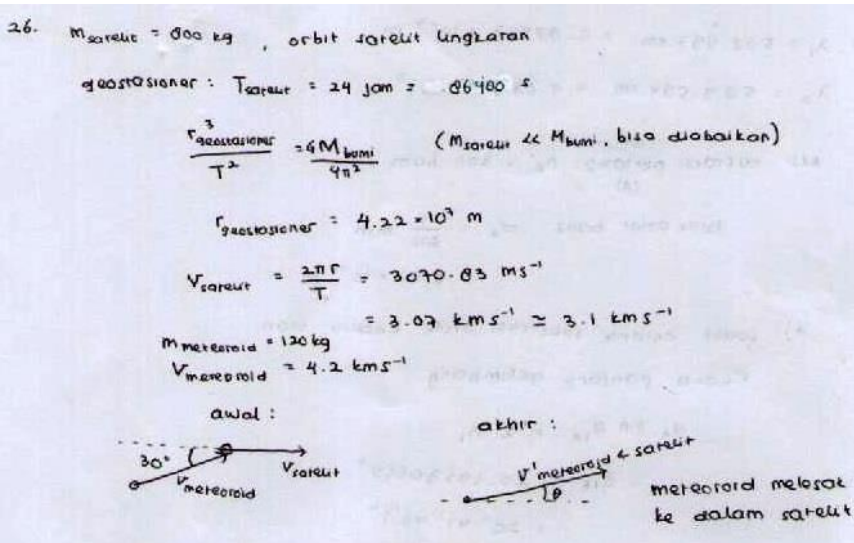 26. m satelit = 800 kg , orbit satelit lingkaran
geostasioner : T satelit = 24 jam = 86400 s
r³ geostasioner / T² = G M bumi / 4π² (m satelit << M bumi, bisa diabaikan)
r geostasioner = 4.22 × 10⁷ m
V satelit = 2πr / T = 3070.83 ms⁻¹
= 3.07 km s⁻¹ ≃ 3.1 km s⁻¹
m meteoroid = 120 kg
V meteoroid = 4.2 km s⁻¹
awal : akhir :
30° V meteoroid V satelit V' meteoroid & satelit θ
meteoroid melesat
ke dalam satelit